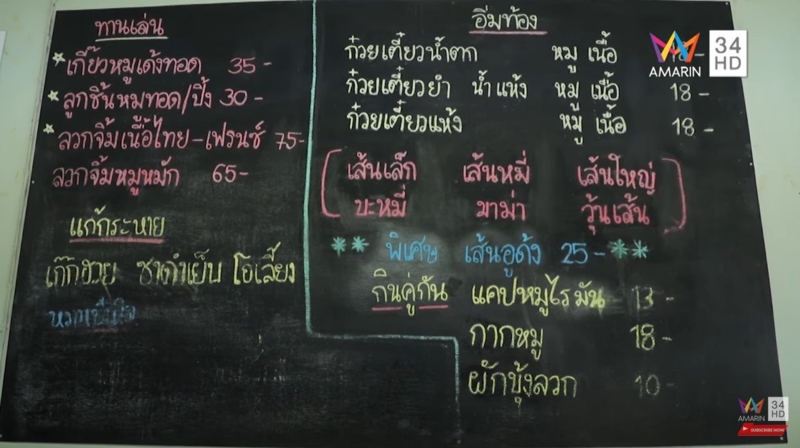 ทานเล่น
เกี๊ยวหมูเด้งทอด 35-
ลูกชิ้นหมูทอด/ปิ้ง 30-
ลวกจิ้มเนื้อไทย-เฟรนช์ 75-
ลวกจิ้มหมูหมัก 65-
แก้กระหาย
เก๊กฮวย ชาดำเย็น โอเลี้ยง
หวานเย็นใจ
อิ่มท้อง
ก๋วยเตี๋ยวน้ำตก หมู เนื้อ 18-
ก๋วยเตี๋ยวยำ น้ำ แห้ง หมู เนื้อ 18-
ก๋วยเตี๋ยวแห้ง หมู เนื้อ 18-
เส้นเล็ก เส้นหมี่ เส้นใหญ่
บะหมี่ มาม่า วุ้นเส้น
** พิเศษ เส้นอูด้ง 25-**
กินคู่กัน แคปหมูไร้มัน 13-
กากหมู 18-
ผักบุ้งลวก 10-
AMARIN 34 HD
AMARIN 34 HD
SUBSCRIBE NOW